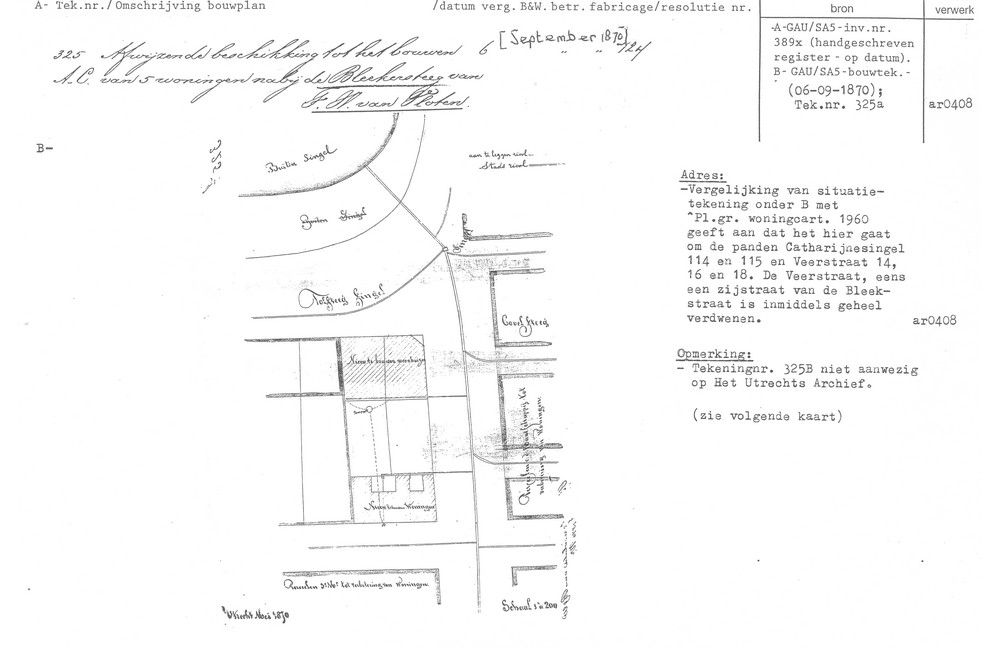 A- Tek.nr./Omschrijving bouwplan /datum verg. B&W. betr. fabricage/resolutie nr.
bron
verwerk
325 Afwijzende beschikking tot het bouwen 6 [September 1870] /124
A.C. van 5 woningen nabij de Bleekersteeg van
F. W. van Vloten.
A-GAU/SA5-inv.nr.
389x (handgeschreven
register - op datum).
B- GAU/SA5-bouwtek.-
(06-09-1870);
Tek.nr. 325a
ar0408
B-
Buiten Singel
aan te leggen riool
Stads riool
Buiten Singel
Tolsteeg Singel
Nieuw te bouwen
Nieuw te bouwen Woningen
Utrecht Nov: 1870
Schaal 1 à 200
Adres:
-Vergelijking van situatie-
tekening onder B met
^Pl.gr. woningcart. 1960
geeft aan dat het hier gaat
om de panden Catharijnesingel
114 en 115 en Veerstraat 14,
16 en 18. De Veerstraat, eens
een zijstraat van de Bleek-
straat is inmiddels geheel
verdwenen.
ar0408
Opmerking:
- Tekeningnr. 325B niet aanwezig
op Het Utrechts Archief.
(zie volgende kaart)